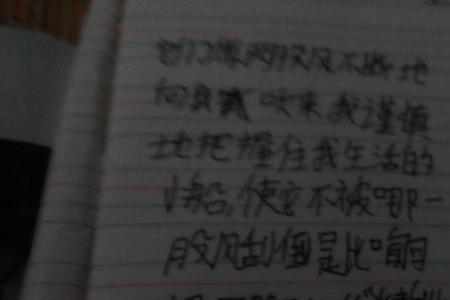 它们像两股风不断地
向我 吹来我谨慎
地把握住我生活的
小船,使它不被哪一
股风刮倒是